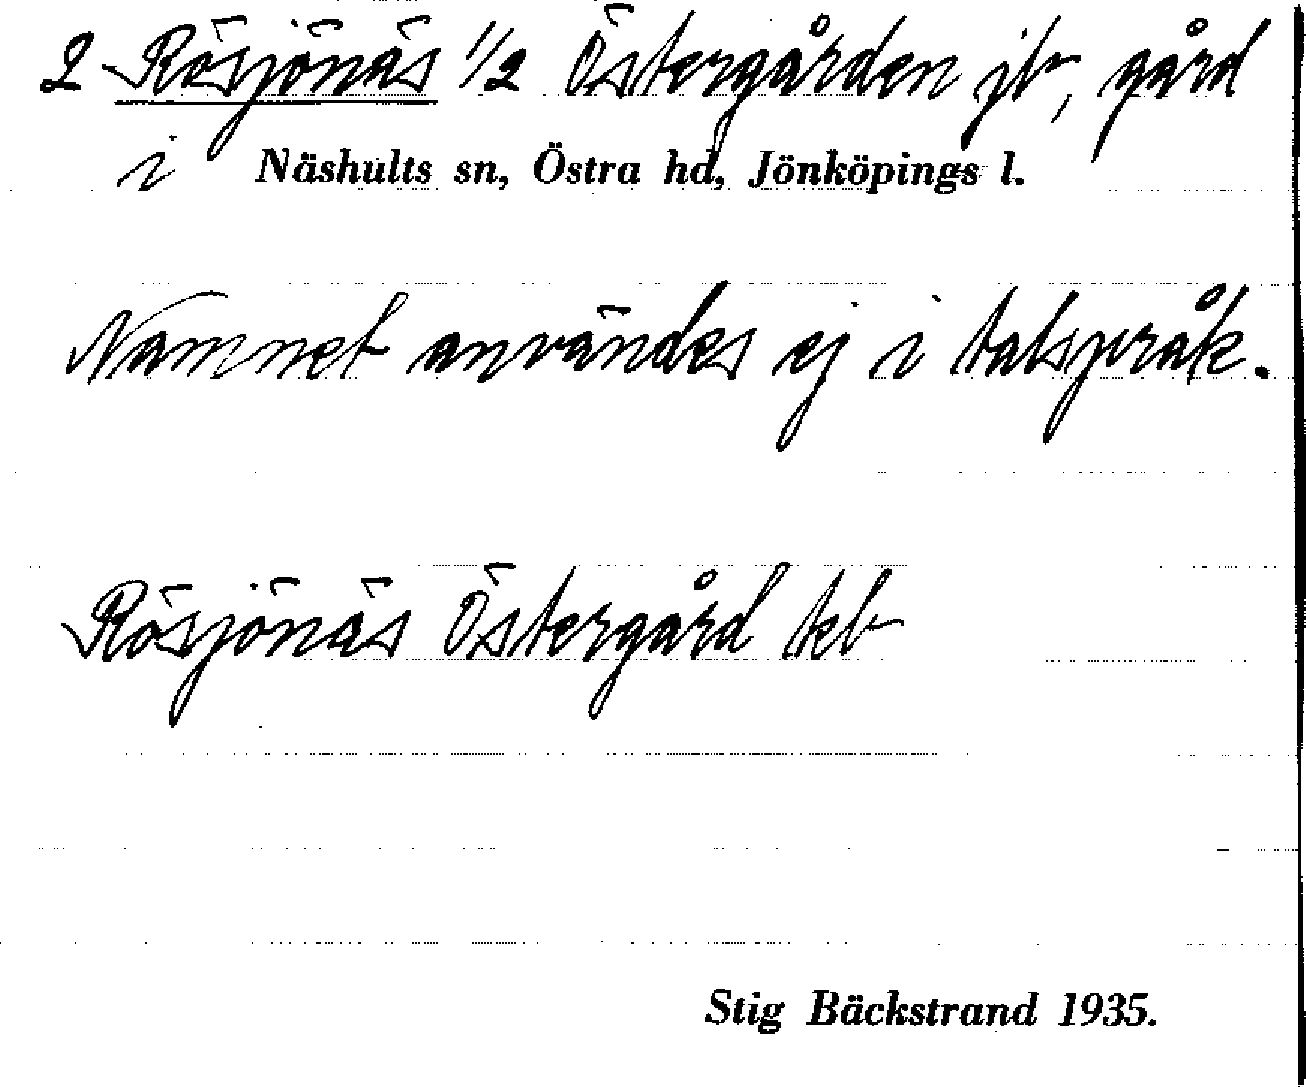 2 Rösjönäs 1/2 Östergården jb, gård
i Näshults sn, Östra hd, Jönköpings l.
Namnet användes ej i talspråk.
Rösjönäs Östergård kb
Stig Bäckstrand 1935.